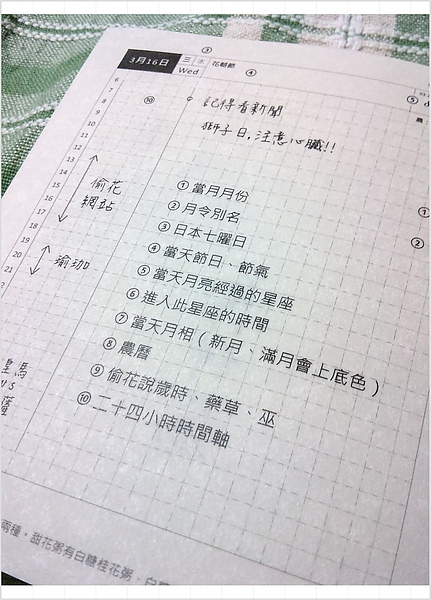 3月16日 三 水 花朝節
Wed
③
④
⑤
⑩
記得看新聞
獅子日,注意心臟!!
6
7
8
9
10
11
12
13
14
15
16
17
18
19
20
21
偷花
網站
瑜珈
皇馬
vs
①
②
①當月月份
②月令別名
③日本七曜日
④當天節日、節氣
⑤當天月亮經過的星座
⑥進入此星座的時間
⑦當天月相(新月、滿月會上底色)
⑧農曆
⑨偷花說歲時、藥草、巫
⑩二十四小時時間軸
兩種,甜花粥有白糖桂花粥、白糖